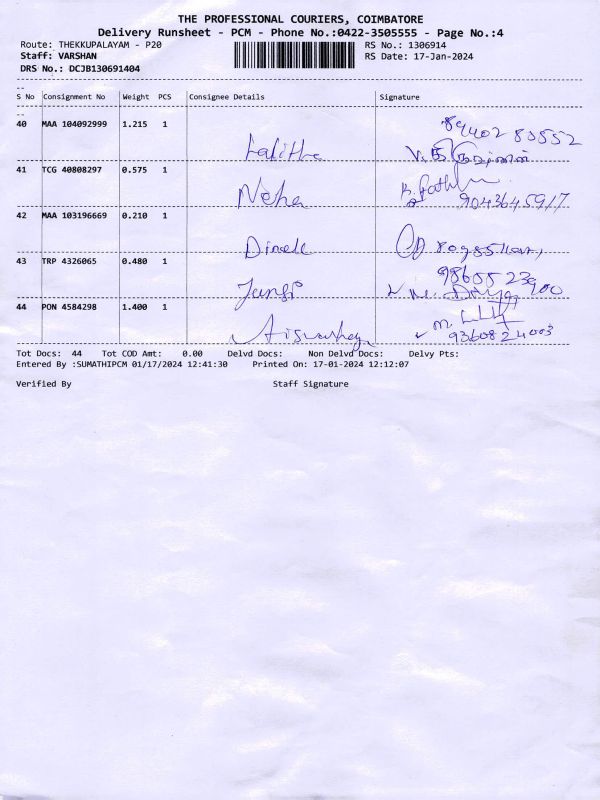 THE PROFESSIONAL COURIERS, COIMBATORE
Delivery Runsheet - PCM - Phone No.:0422-3505555 - Page No.:4
Route: THEKKUPALAYAM - P20 RS No.: 1306914
Staff: VARSHAN RS Date: 17-Jan-2024
DRS No.: DCJB130691404
S No Consignment No Weight PCS Consignee Details Signature
40 MAA 104092999 1.215 1 Lalitha 89402 80552
41 TCG 40808297 0.575 1 Neha 9043645917
42 MAA 103196669 0.210 1
43 TRP 4326065 0.480 1
44 PON 4584298 1.400 1 9360824003
Tot Docs: 44 Tot COD Amt: 0.00 Delvd Docs: Non Delvd Docs: Delvy Pts:
Entered By :SUMATHIPCM 01/17/2024 12:41:30 Printed On: 17-01-2024 12:12:07
Verified By Staff Signature